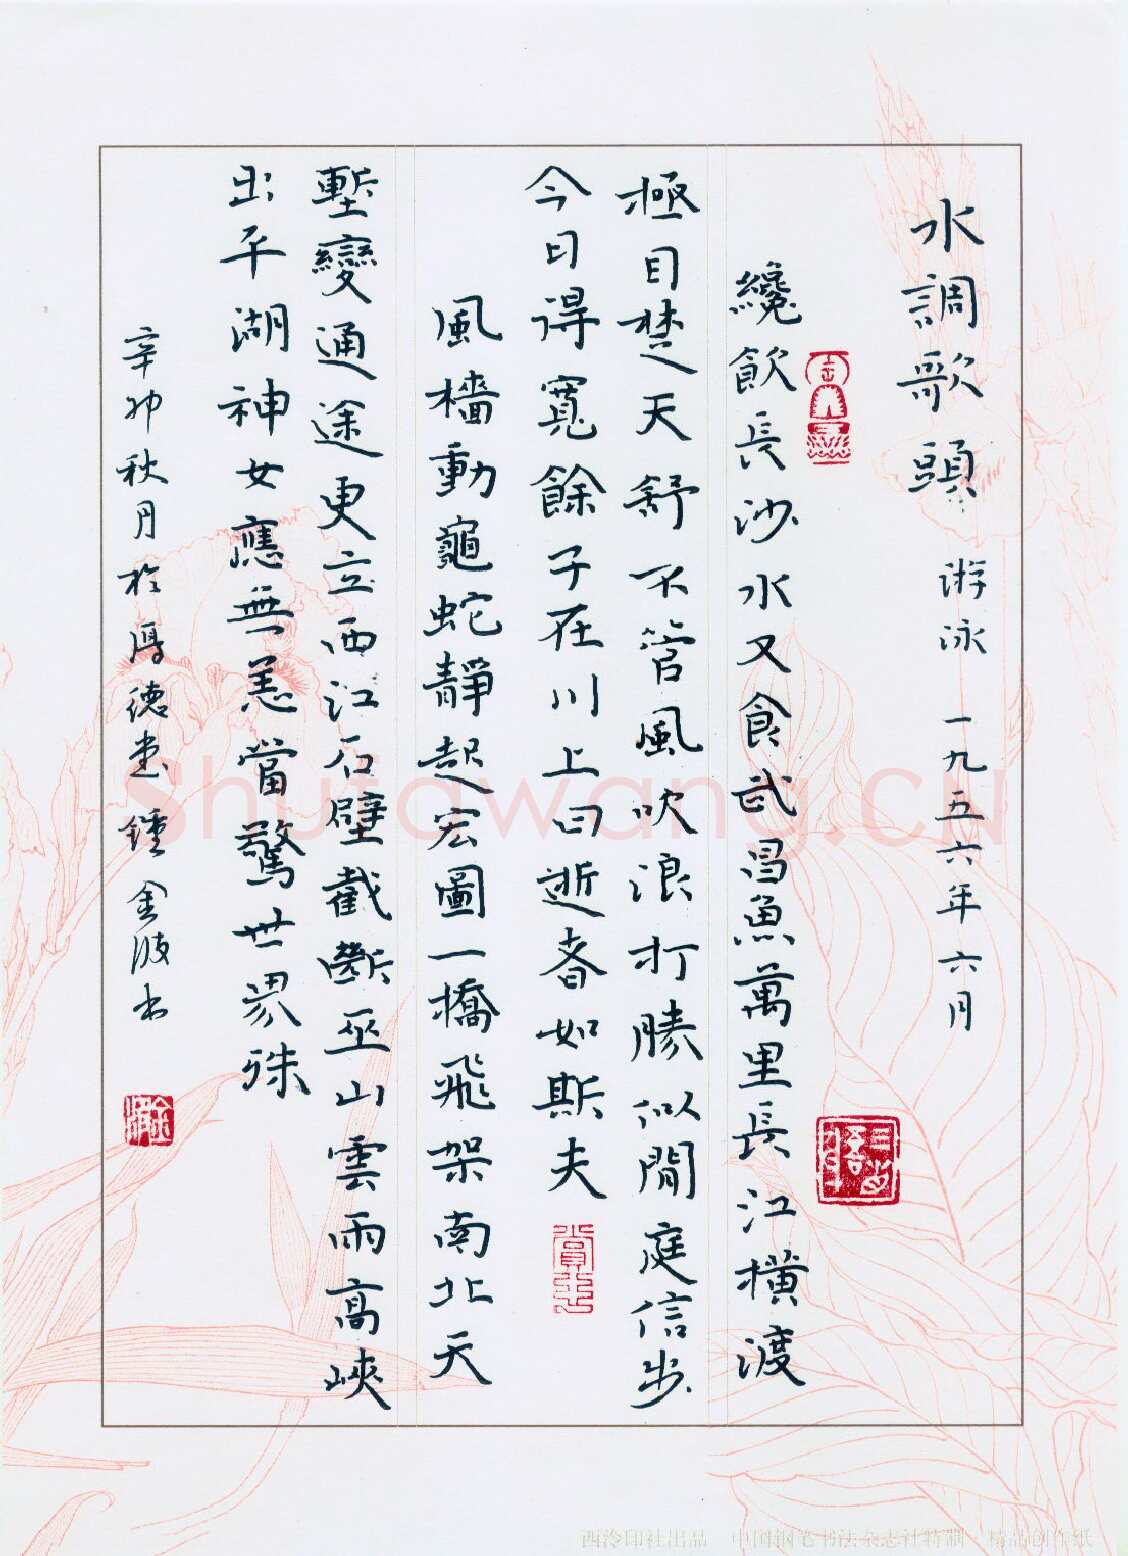 水調歌頭 游泳 一九五六年六月
纔飲長沙水又食武昌魚萬里長江橫渡
極目楚天舒不管風吹浪打勝似閒庭信步
今日得寬餘子在川上曰逝者如斯夫
風檣動龜蛇靜起宏圖一橋飛架南北天
塹變通途更立西江石壁截斷巫山雲雨高峽
出平湖神女應無恙當驚世界殊
辛卯秋月於厚德堂鍾金波書
Shufawang.CN
西泠印社出品 中国钢笔书法杂志社特制 精品创作纸